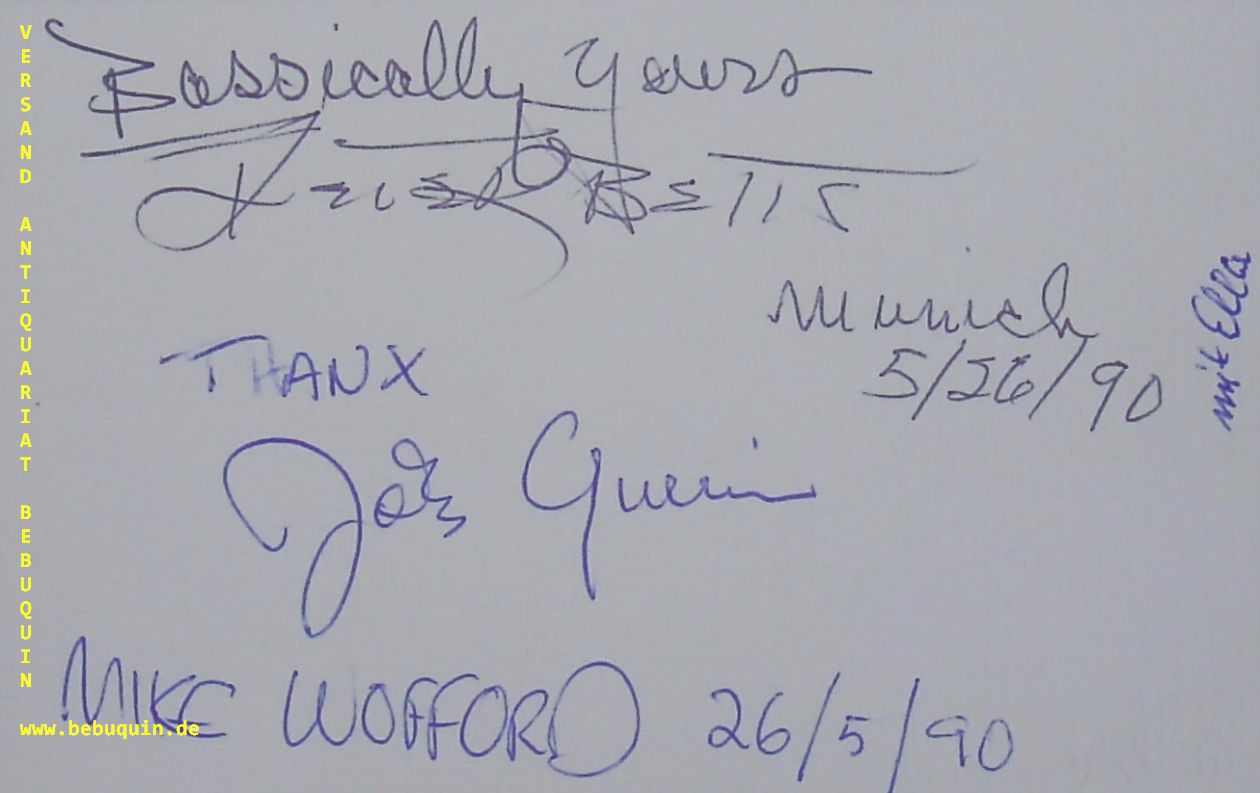 Bassically Yours
Keter Betts
Munich
5/26/90
mit Ella
THANX
John Guerin
MIKE WOFFORD 26/5/90
VERSAND ANTIQUARIAT BEBUQUIN
www.bebuquin.de